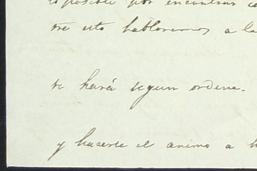 posible por encontrar
tre esto hablaremos a la
se hará segun ordene.
y hacerte el animo a